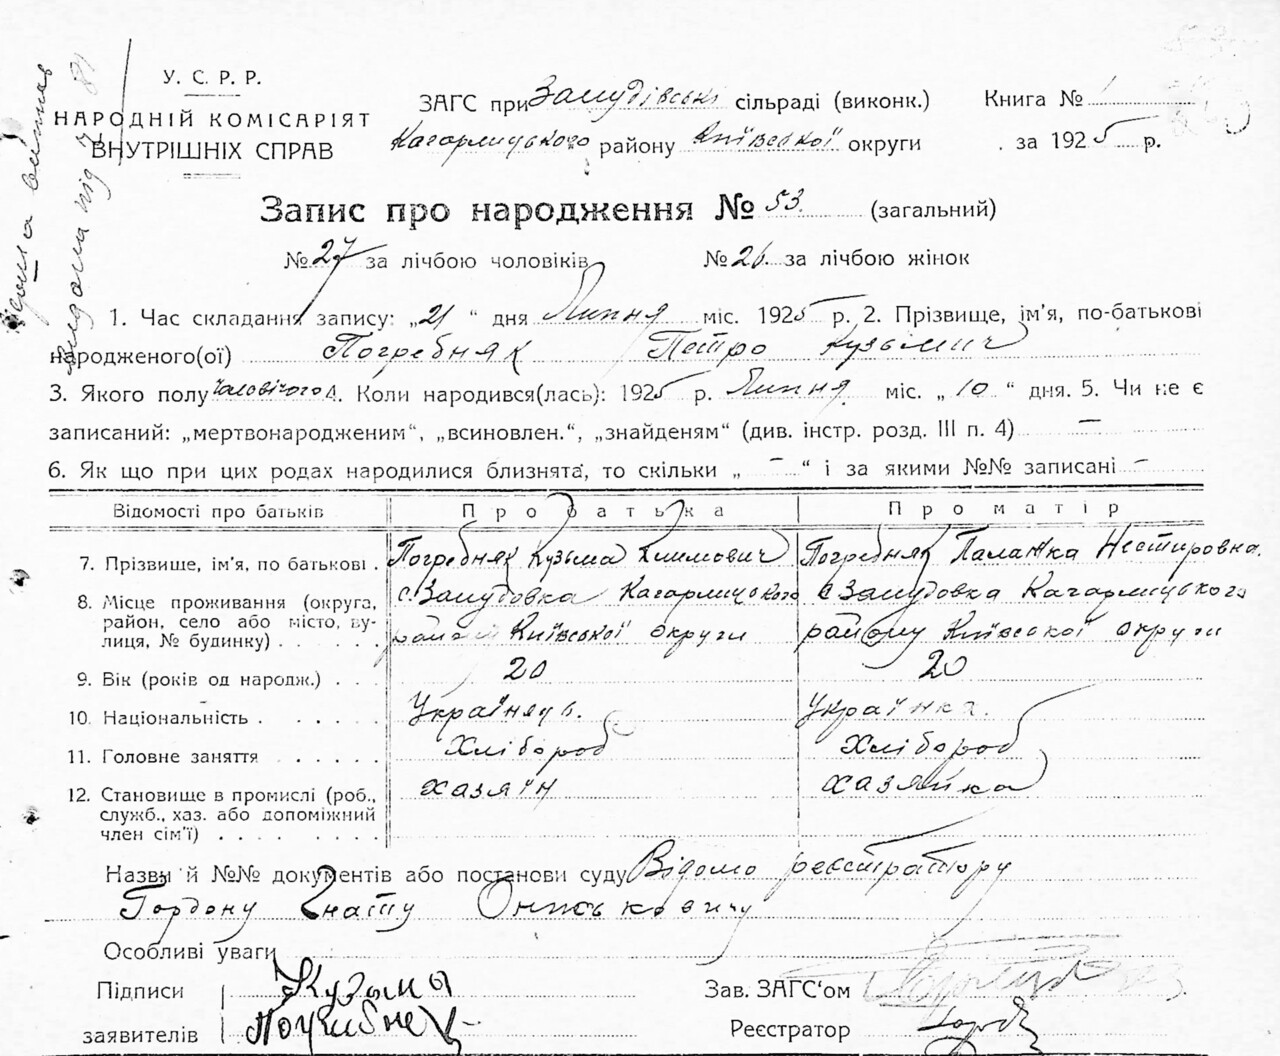 У. С. Р. Р.
НАРОДНІЙ КОМІСАРІЯТ
ВНУТРІШНІХ СПРАВ
ЗАГС при Замудівські сільраді (виконк.)
Кагарлицького району Київської округи
Книга № 1
за 1925 р.
Запис про народження № 53 (загальний)
№ 27 за лічбою чоловіків № 26 за лічбою жінок
1. Час складання запису: „21“ дня Липня міс. 1925 р. 2. Прізвище, ім'я, по-батькові
народженого(ої) Погребняк Петро Кузьмич
3. Якого полу чоловічого 4. Коли народився(лась): 1925 р. Липня міс. „10“ дня. 5. Чи не є
записаний: „мертвонародженим“, „всиновлен.“, „знайденям“ (див. інстр. розд. III п. 4) —
6. Як що при цих родах народилися близнята, то скільки „ - “ і за якими №№ записані -
Відомості про батьків Про батька Про матір
7. Прізвище, ім'я, по батькові . Погребняк Кузьма Климович Погребняк Палажка Нестировна.
8. Місце проживання (округа, район, село або місто, вулиця, № будинку) . . . . . . с. Замудовка Кагарлицького с Замудовка Кагарлицького
району Київської округи району Київської округи
9. Вік (років од народж.) . . . 20 20
10. Національність . . . . . . Українець. Українка.
11. Головне заняття . . . . . Хлібороб Хлібороб
12. Становище в промислі (роб., служб., хаз. або допоміжний член сім'ї) . . . . . хазяїн хазяйка
Назви й №№ документів або постанови суду Відомо реєстратору
Гордону Гнату
Особливі уваги
Підписи заявителів Кузьма
Зав. ЗАГС'ом
Реєстратор